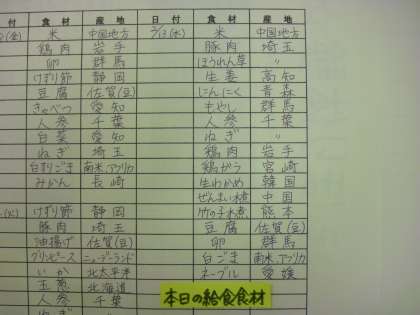 食材 産地 日付 食材 産地
(金) 米 中国地方 2/13(水) 米 中国地方
鶏肉 岩手 豚肉 埼玉
卵 群馬 ほうれん草 〃
けずり節 静岡 生姜 高知
豆腐 佐賀(豆) にんにく 青森
きゃべつ 愛知 もやし 群馬
人参 千葉 人参 千葉
白菜 愛知 ねぎ 〃
ねぎ 埼玉 鶏肉 岩手
白すりごま 南米、アフリカ 鶏がら 宮崎
みかん 長崎 生わかめ 韓国
ぜんまい水煮 中国
(火) けずり節 静岡 竹の子水煮 熊本
豚肉 埼玉 豆腐 佐賀(豆)
油揚げ 佐賀(豆) 卵 群馬
グリンピース ニュージーランド 白ごま 南米、アフリカ
いか 北太平洋 ネーブル 愛媛
玉葱 北海道
人参 千葉
ねぎ 〃
本日の給食食材